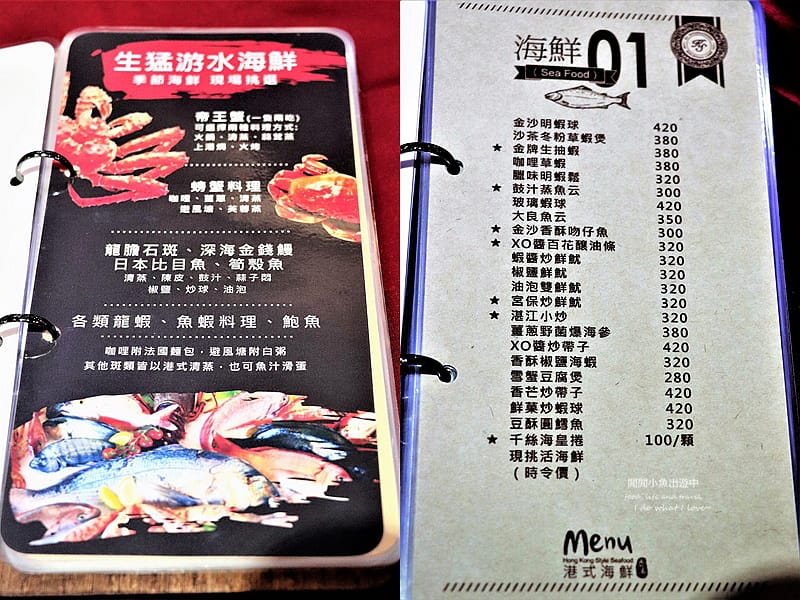 生猛游水海鮮
季節海鮮 現場挑選
帝王蟹(一隻兩吃)
可選擇兩種料理方式:
火鍋、清蒸、蒜蓉蒸
上湯焗、火烤
螃蟹料理
咖哩、薑蔥、清蒸
避風塘、芙蓉蒸
龍膽石斑、深海金錢鰻
日本比目魚、筍殼魚
清蒸、陳皮、豉汁、蒜子悶
椒鹽、炒球、油泡
各類龍蝦、魚蝦料理、鮑魚
咖哩附法國麵包,避風塘附白粥
其他斑類皆以港式清蒸,也可魚汁滑蛋
海鮮 01
(Sea Food)
金沙明蝦球 420
沙茶冬粉草蝦煲 380
★ 金牌生抽蝦 380
咖哩草蝦 380
臘味明蝦鬆 320
★ 豉汁蒸魚云 300
玻璃蝦球 420
大良魚云 350
★ 金沙香酥吻仔魚 300
★ XO醬百花釀油條 320
蝦醬炒鮮魷 320
椒鹽鮮魷 320
油泡雙鮮魷 320
★ 宮保炒鮮魷 320
★ 湛江小炒 320
薑蔥野菌爆海參 380
XO醬炒帶子 420
香酥椒鹽海蝦 320
雪蟹豆腐煲 280
香芒炒帶子 420
鮮菓炒蝦球 420
豆酥圓鱈魚 320
★ 千絲海皇捲 100/顆
現挑活海鮮
(時令價)
閒閒小魚出遊中
food, life and travel
I do what I love~
Menu
Hong Kong Style Seafood
港式海鮮